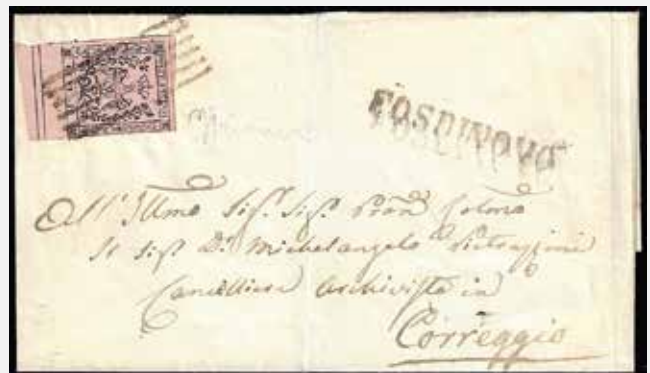 FOSDINOVO
All' Illmo Sig.r Sig.r Pron Colmo
Il Sig.r D.r Michelangelo
Cancelliere Archivista in
Correggio